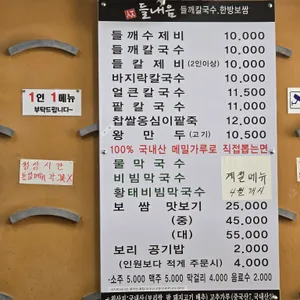 들내음 들깨칼국수.한방보쌈
들깨수제비 10,000
들깨칼국수 10,000
들칼제비(2인이상) 10,000
바지락칼국수 10,000
얼큰칼국수 11,500
팥칼국수 11,000
찹쌀옹심이팥죽 12,000
왕만두(고기) 10,500
100% 국내산 메밀가루로 직접뽑는면
물막국수
비빔막국수
황태비빔막국수
계절메뉴
보쌈 맛보기 25,000
(중) 45,000
(대) 55,000
보리 공기밥 2,000
(인원보다 적게 주문시) 4,000
·소주 5.000 맥주 5.000 막걸리 4.000 음료수 2.000
1인 1메뉴
부탁드립니다~
점심시간